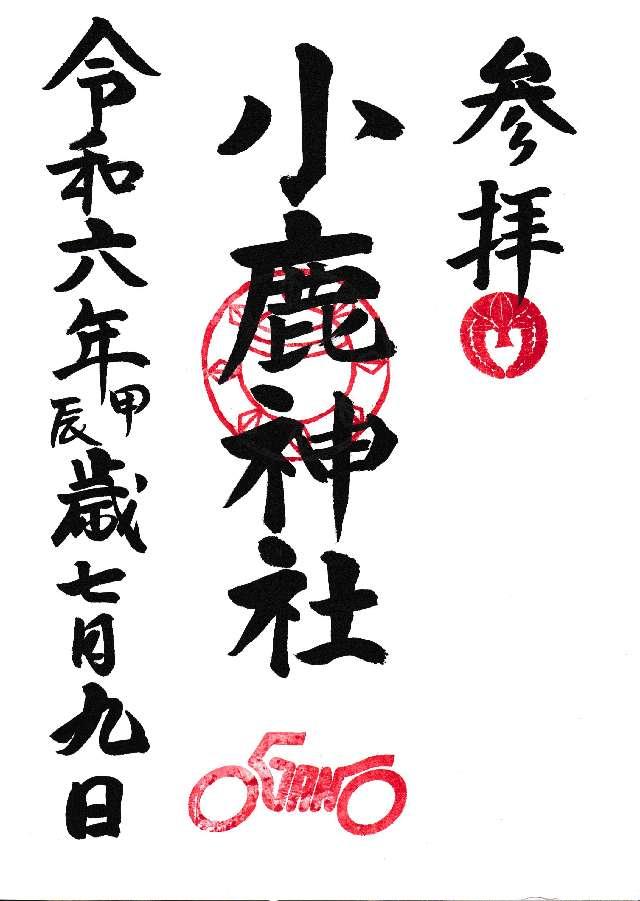 参拝
小鹿神社
OGANO
令和六年甲辰歳七月九日